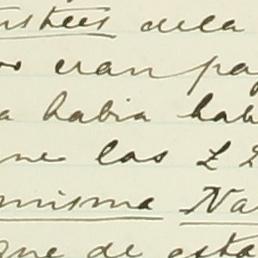 ustees dela
eran pag
a habia hab
que las £ 2
misma Na
que de esta